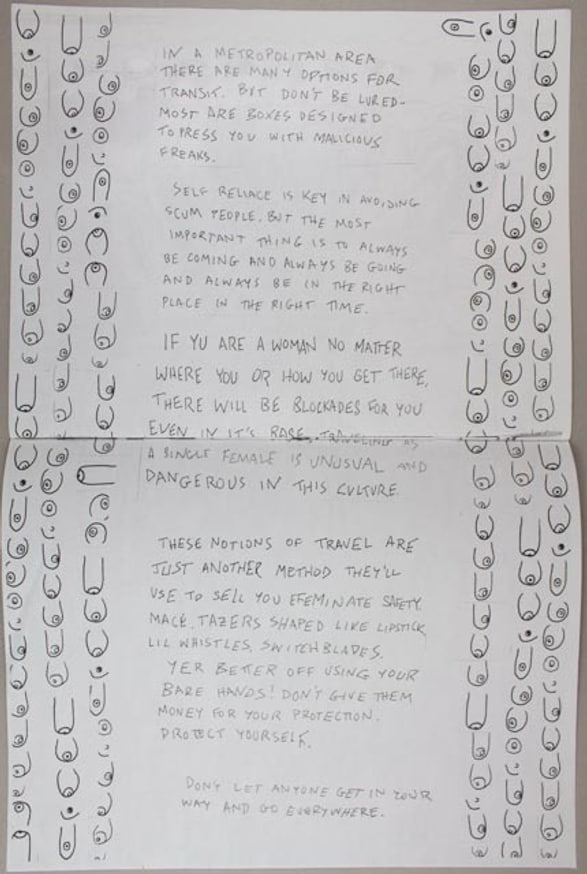 IN A METROPOLITAN AREA
THERE ARE MANY OPTIONS FOR
TRANSIT. BUT DON'T BE LURED-
MOST ARE BOXES DESIGNED
TO PRESS YOU WITH MALICIOUS
FREAKS.
SELF RELIACE IS KEY IN AVOIDING
SCUM PEOPLE. BUT THE MOST
IMPORTANT THING IS TO ALWAYS
BE COMING AND ALWAYS BE GOING
AND ALWAYS BE IN THE RIGHT
PLACE IN THE RIGHT TIME.
IF YU ARE A WOMAN NO MATTER
WHERE YOU OR HOW YOU GET THERE,
THERE WILL BE BLOCKADES FOR YOU
EVEN IN IT'S BASE, TRAVELING AS
A SINGLE FEMALE IS UNUSUAL AND
DANGEROUS IN THIS CULTURE.
THESE NOTIONS OF TRAVEL ARE
JUST ANOTHER METHOD THEY'LL
USE TO SELL YOU EFEMINATE SAFETY.
MACE, TAZERS SHAPED LIKE LIPSTICK,
LIL WHISTLES, SWITCHBLADES.
YER BETTER OFF USING YOUR
BARE HANDS! DON'T GIVE THEM
MONEY FOR YOUR PROTECTION.
PROTECT YOURSELF.
DONT LET ANYONE GET IN YOUR
WAY AND GO EVERYWHERE.